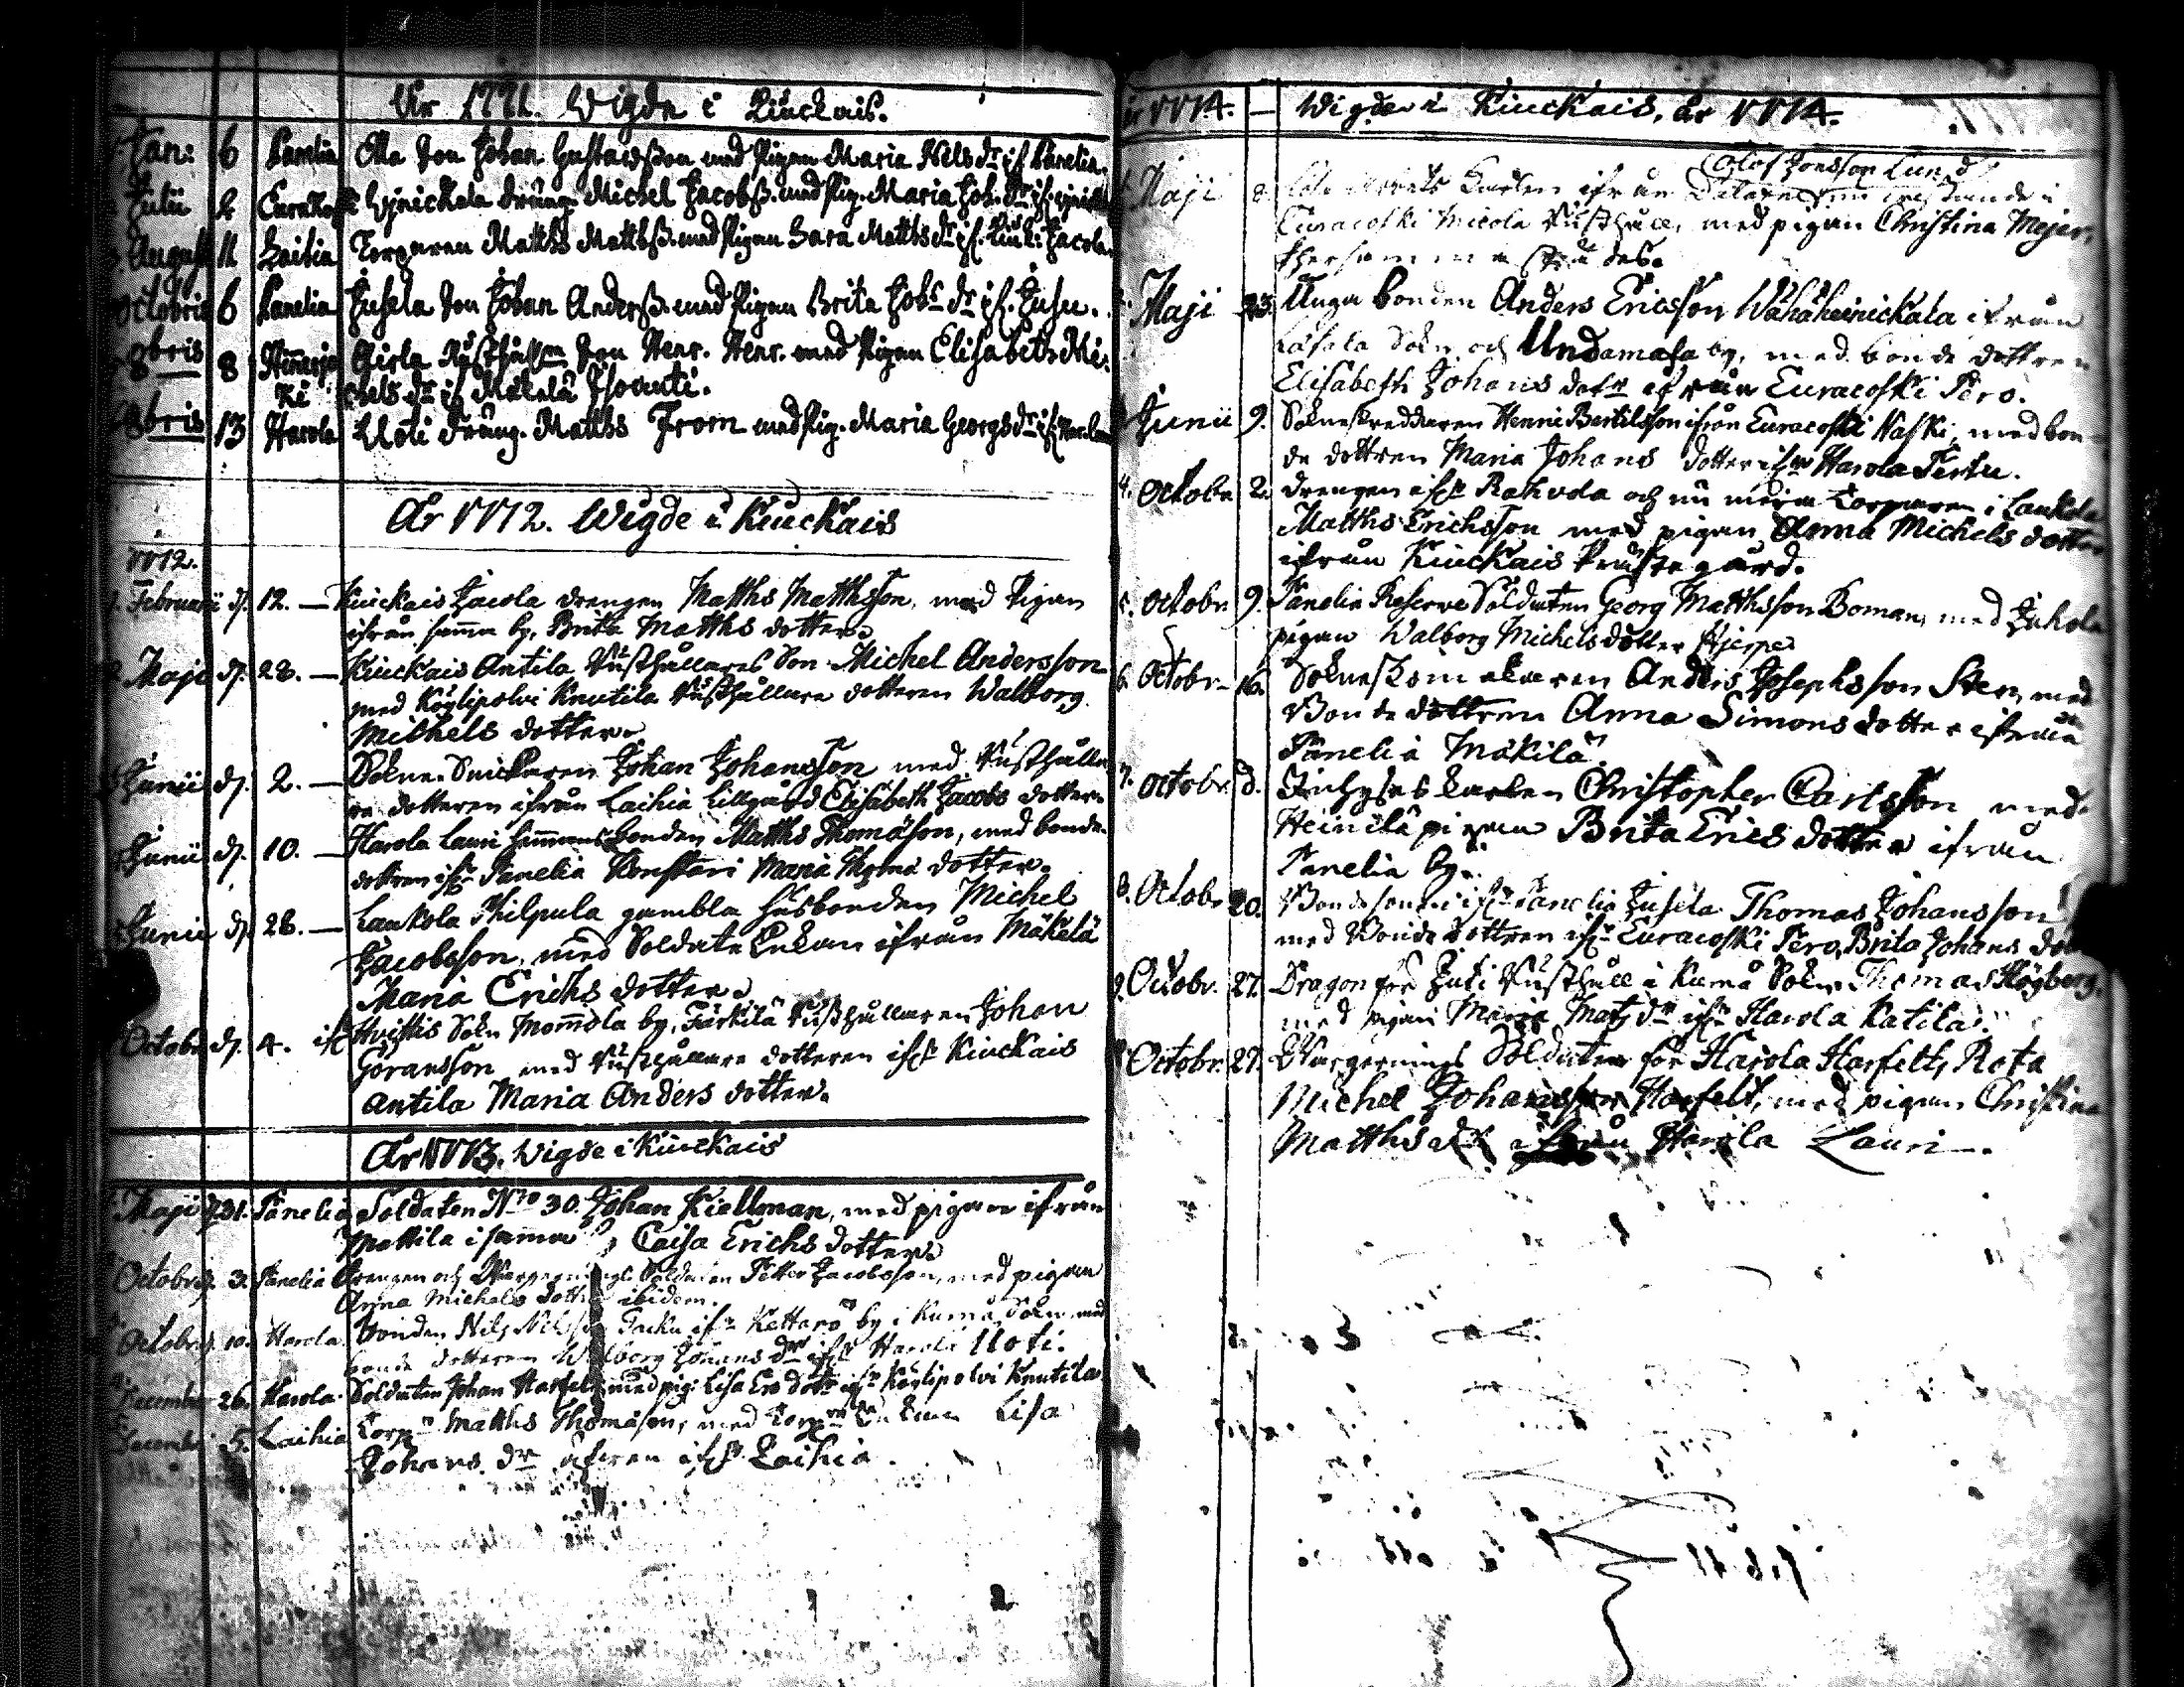 År 1771. Wigde i Kiuckais.
Jan: 6 Panelia Olla Son Johan Gustavsson med Pigan Maria Nils dr if. Panelia.
Julii 2 Eurakoski Michel Jacobss. med Pig. Maria Joh. dr if.
August 11 Laihia Torparen Matths Matthss. med Pigan Sara Matths dr if. Kiuk. Jacola.
Octobris 6 Panelia Jusela Son Johan Anderss. med Pigan Brita Johs dr if. Jusu.
8bris 8 Rusthåll. Son Henr. Henr. med Pigan Elisabeth Mi-
chels dr if Mäkelä
8bris 13 Harola Uoti dräng. Matths From med Pig. Maria Georgs dr if.
År 1772. Wigde i Kiuckais
1772.
1. Februarii d. 12. — Kiuckais Jacola drengen Matths Matthsson, med Pigan
ifrån samma by, Brita Matths dotter.
2. Maji d. 28. — Kiuckais Antila Rusthållares Son Michel Andersson
med Köylipolvi Knutila Rusthållare dotteren Walborg
Michels dotter.
Junii d. 2. — Sokne Snickaren Johan Johansson med Rusthålla-
re dotteren ifrån Laihia Lillgård Elisabeth Jacobs dotter.
Junii d. 10. — Harola Lauri hemmans bonden Matths Thomason, med bonde-
dottren ifrn Panelia Konstari Maria Thoma dotter.
Junii d. 28. — Lankola Philpula gambla husbonden Michel
Jacobsson, med Soldate Enkan ifrån Mäkelä
Maria Erichs dotter.
Octobr d. 4. Hvittis Sokn Mommola by, Rusthållaren Johan
Göransson med Rusthållare dotteren ifrn Kiuckais
Antila Maria Anders dotter.
År 1773. Wigde i Kiuckais
Maji 31. Panelia Soldaten No 30. Johan Kiellman, med pigan ifrån
Mattila i samma by, Caisa Erichs dotter.
Octobr. 3. Panelia drengen och Soldaten Petter Jacobsson, med pigan
Anna Michels dotter ibidem.
Octobr. 10. Harola Bonden Nils Nilsson ifrn Kettarö by i Kumå Sokn med
bonde dotteren Walborg Johans dr ifrn Harola Uoti.
December 26. Harola Soldaten Johan Harfelt med pig: Lisa Ers dotr ifrn Köylipolvi Knutila
December 5. Laihia Torpn Matths Thomason, med Enkan Lisa
Johans dr ifrn Laihia.
1774. — Wigde i Kiuckais, år 1774.
Olof Jonsson Lund
Maji ifrån i
Euracoski Micola Rusthåll, med pigan Christina Mejer,
Maji 23. Unga bonden Anders Ericsson Wähäheinickala ifrån
Sokn och Undamala by, med bonde dottren
Elisabeth Johans dotr ifrån Euracoski Pero.
Junii 9. Sokneskreddaren Henric Bertilsson ifrån Euracoski med bon-
de dottren Maria Johans dotter ifrn Harola Perttu.
4. Octobr 2. drengen ifrn Rahvola och nu mera torparen i Lankola
Matths Erichsson med pigan Anna Michels dotter
ifrån Kiuckais Prästegård.
5. Octobr. 9. Panelia Reserve Soldaten Georg Matthsson Boman, med
pigan Walborg Michelsdotter Hjerpe
6. Octobr. 16. Sokneskomakaren Anders Josephsson Sten med
Bonde dottren Anna Simons dotter ifrån
Panelia Mäkilä.
7. Octobr. d. Inhyses karlen Christopher Carlsson med
Heinilä pigan Brita Erics dotter ifrån
Panelia by.
8. Octobr 20. Bondesonen ifrn Panelia Jusela Thomas Johansson
med Bonde dottren ifrn Euracoski Pero, Brita Johans
9. Octobr. 27. Dragon för Juti Rusthåll i Kumå Sokn Thomas Högberg,
med pigan Maria Mats dr ifrn Harola Katila.
Octobr. 27. Soldaten för Harola Harfelts Rota
Michel Johansson Harfelt, med pigan Christina
Matths dr ifrån Harola Lauri.